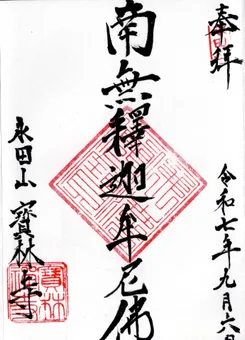 奉拝
令和七年九月六日
南無釋迦牟尼佛
永田山 寶林寺
寶林